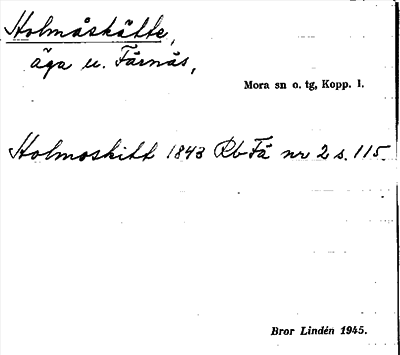 Holmåskätte,
äga u. Färnäs,
Mora sn o. tg, Kopp. l.
Holmoskitt 1843 Rb Fä nr 2 s. 115.
Bror Lindén 1945.